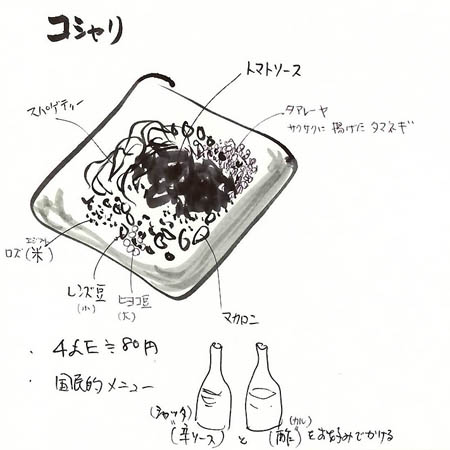 コシャリ
トマトソース
スパゲティー
タアレーヤ
サクサクに揚げた タマネギ
エジプト
ロズ(米)
レンズ豆
(小)
ヒヨコ豆
(大)
マカロニ
・ 4£E≒80円
・ 国民的メニュー
(シャッタ)
(辛ソース) と (酢) をお好みでかける
(カル)